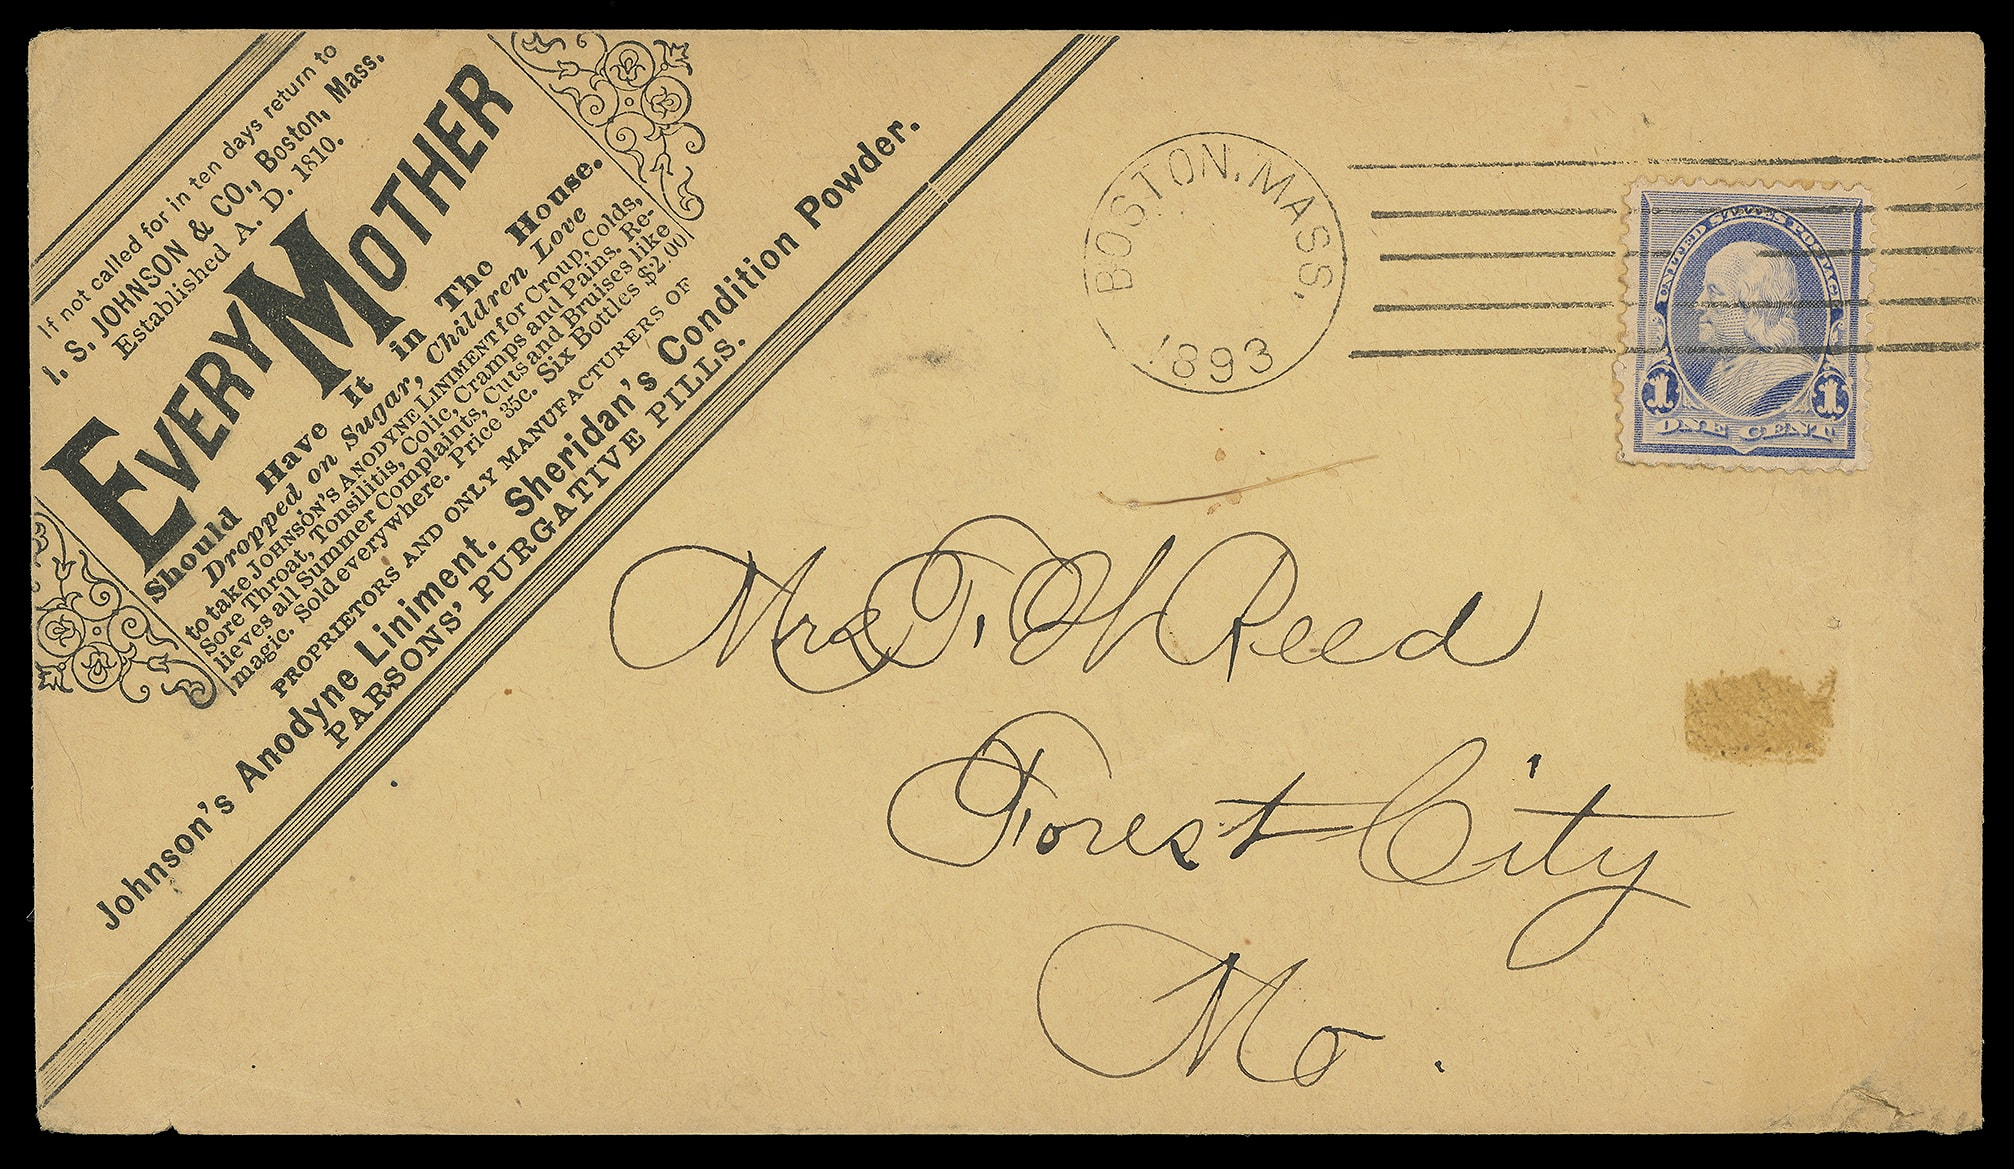 If not called for in ten days return to
I. S. JOHNSON & CO., Boston, Mass.
Established A. D. 1810.
EVERY MOTHER
Should Have It in The House.
Dropped on Sugar, Children Love
to take JOHNSON'S ANODYNE LINIMENT for Croup, Colds,
Sore Throat, Tonsilitis, Colic, Cramps and Pains. Re-
lieves all Summer Complaints, Cuts and Bruises like
magic. Sold everywhere. Price 35c. Six Bottles $2.00
PROPRIETORS AND ONLY MANUFACTURERS OF
Johnson's Anodyne Liniment. Sheridan's Condition Powder.
PARSONS' PURGATIVE PILLS.
BOSTON, MASS.
1893
UNITED STATES POSTAGE
1 1
ONE CENT
Mrs T. W Reed
Forest City
Mo.